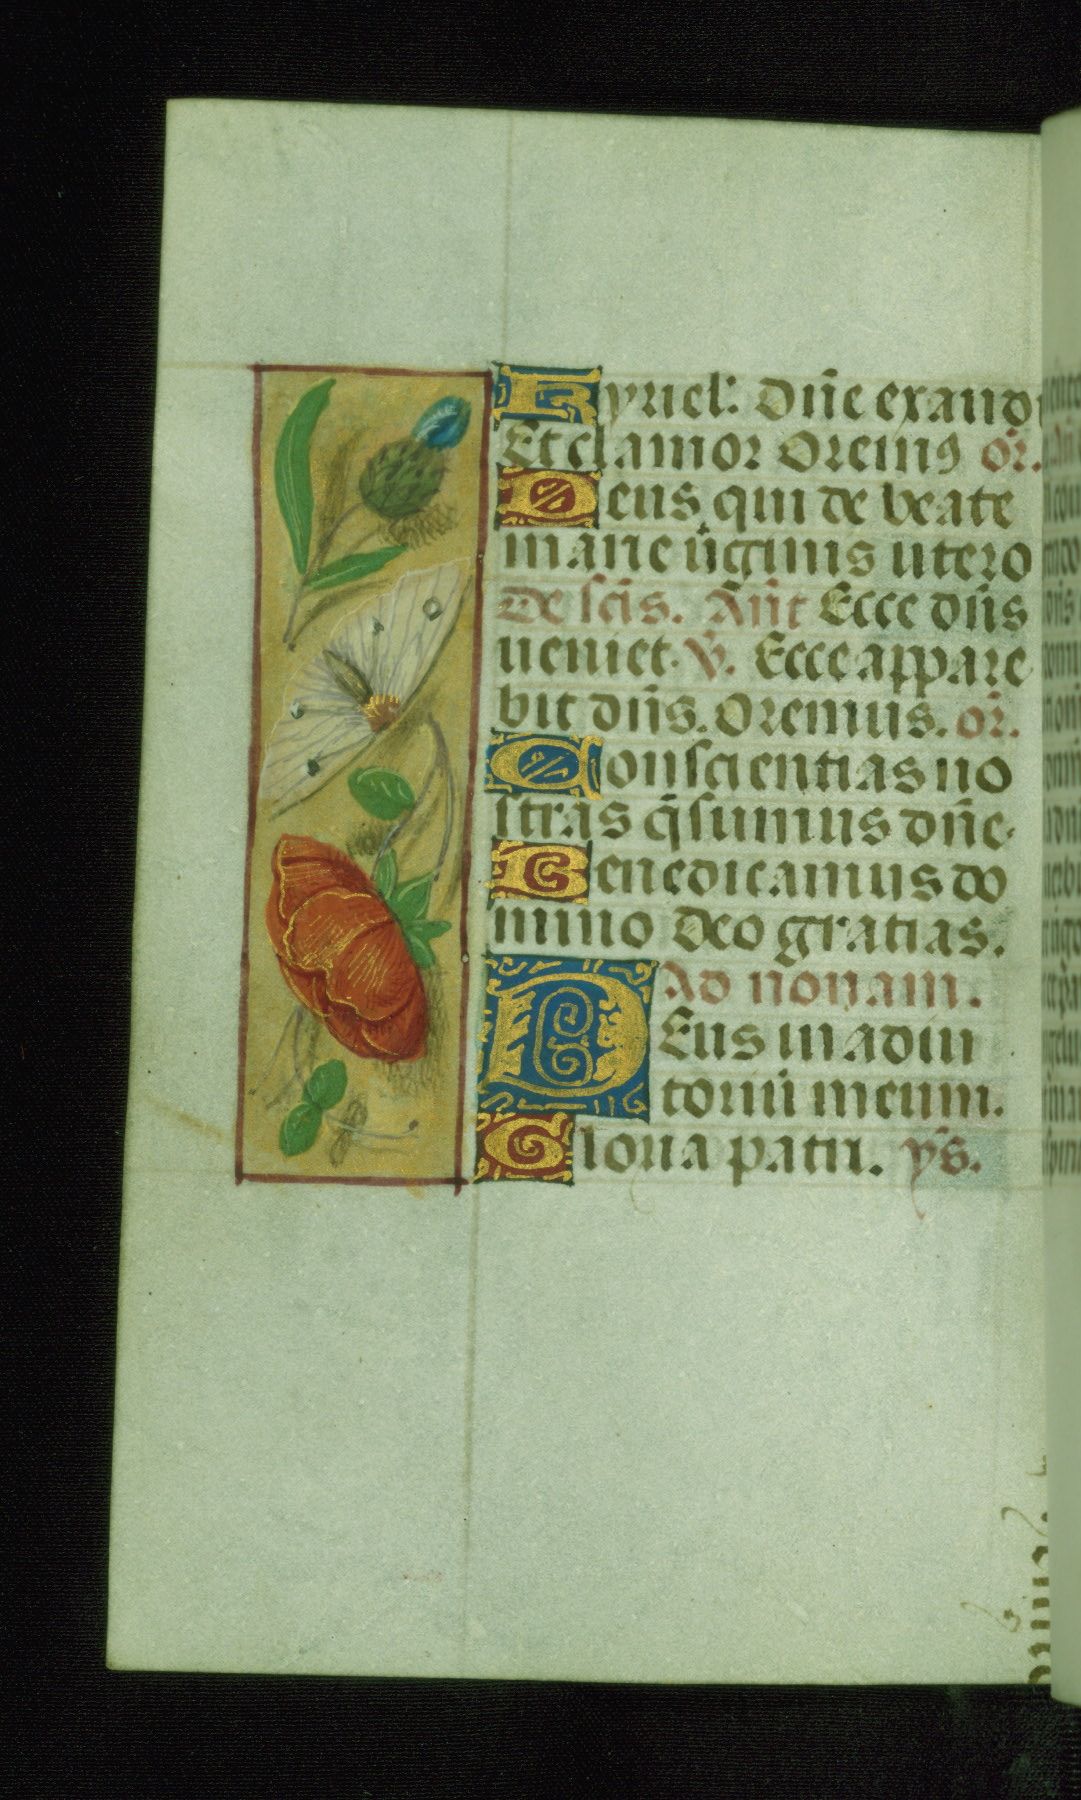 Kyriel'. Dn̄e exaudi
Et clamor Oremꝰ or̄.
Deus qui de beate
marie ūginis utero
De sc̄is. An̄t Ecce dn̄s
ueniet. V̄. Ecce appare
bit dn̄s. Oremus. or̄.
Conscientias no
stras q̄sumus dn̄e.
Benedicamus do
mino Deo gratias.
Ad nonam.
DEus in adiu
toriū meum.
Gloria patri. ys̄.